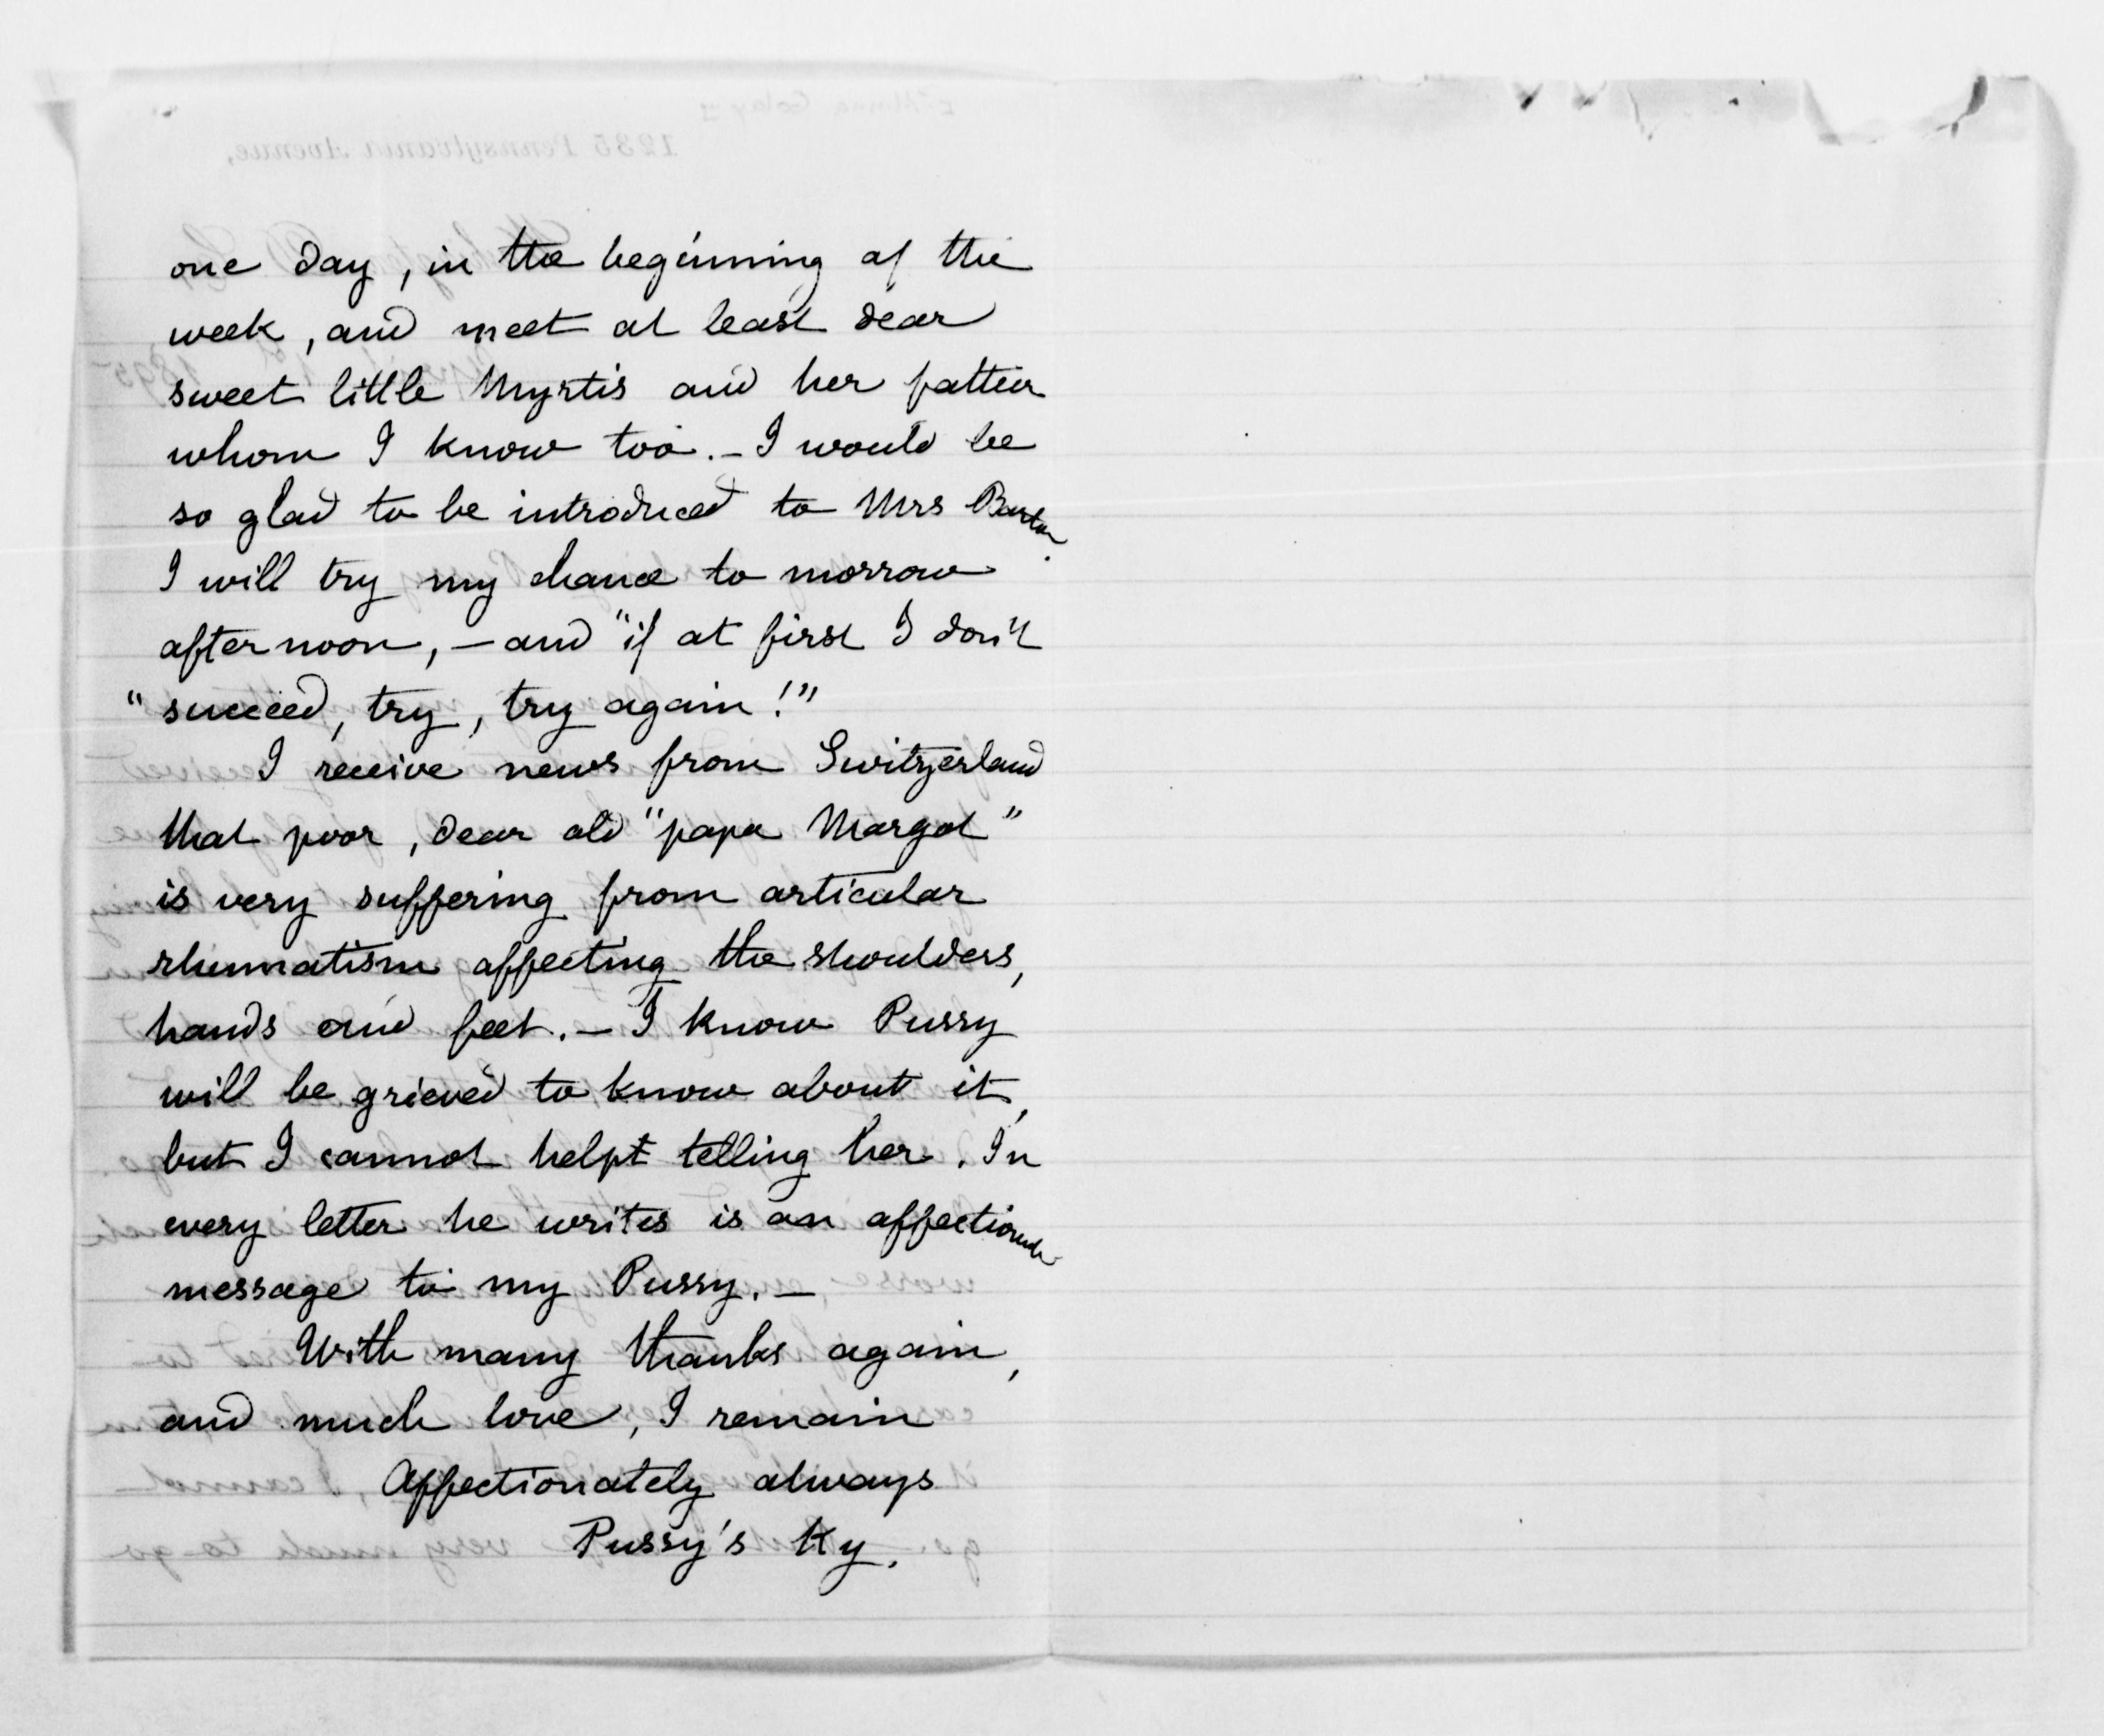 one day, in the beginning of the
week, and meet at least dear
sweet little Myrtis and her father
whom I know too. – I would be
so glad to be introduced to Mrs Barton.
I will try my chance to morrow
after noon, – and "if at first I don't
"succeed, try, try again!"
I receive news from Switzerland
that poor, dear old "papa Margot"
is very suffering from articular
rheumatism affecting the shoulders,
hands and feet. – I know Pussy
will be grieved to know about it,
but I cannot helpt telling her. In
every letter he writes is an affectionate
message to my Pussy. –
With many thanks again,
and much love, I remain
Affectionately always
Pussy's Ky.